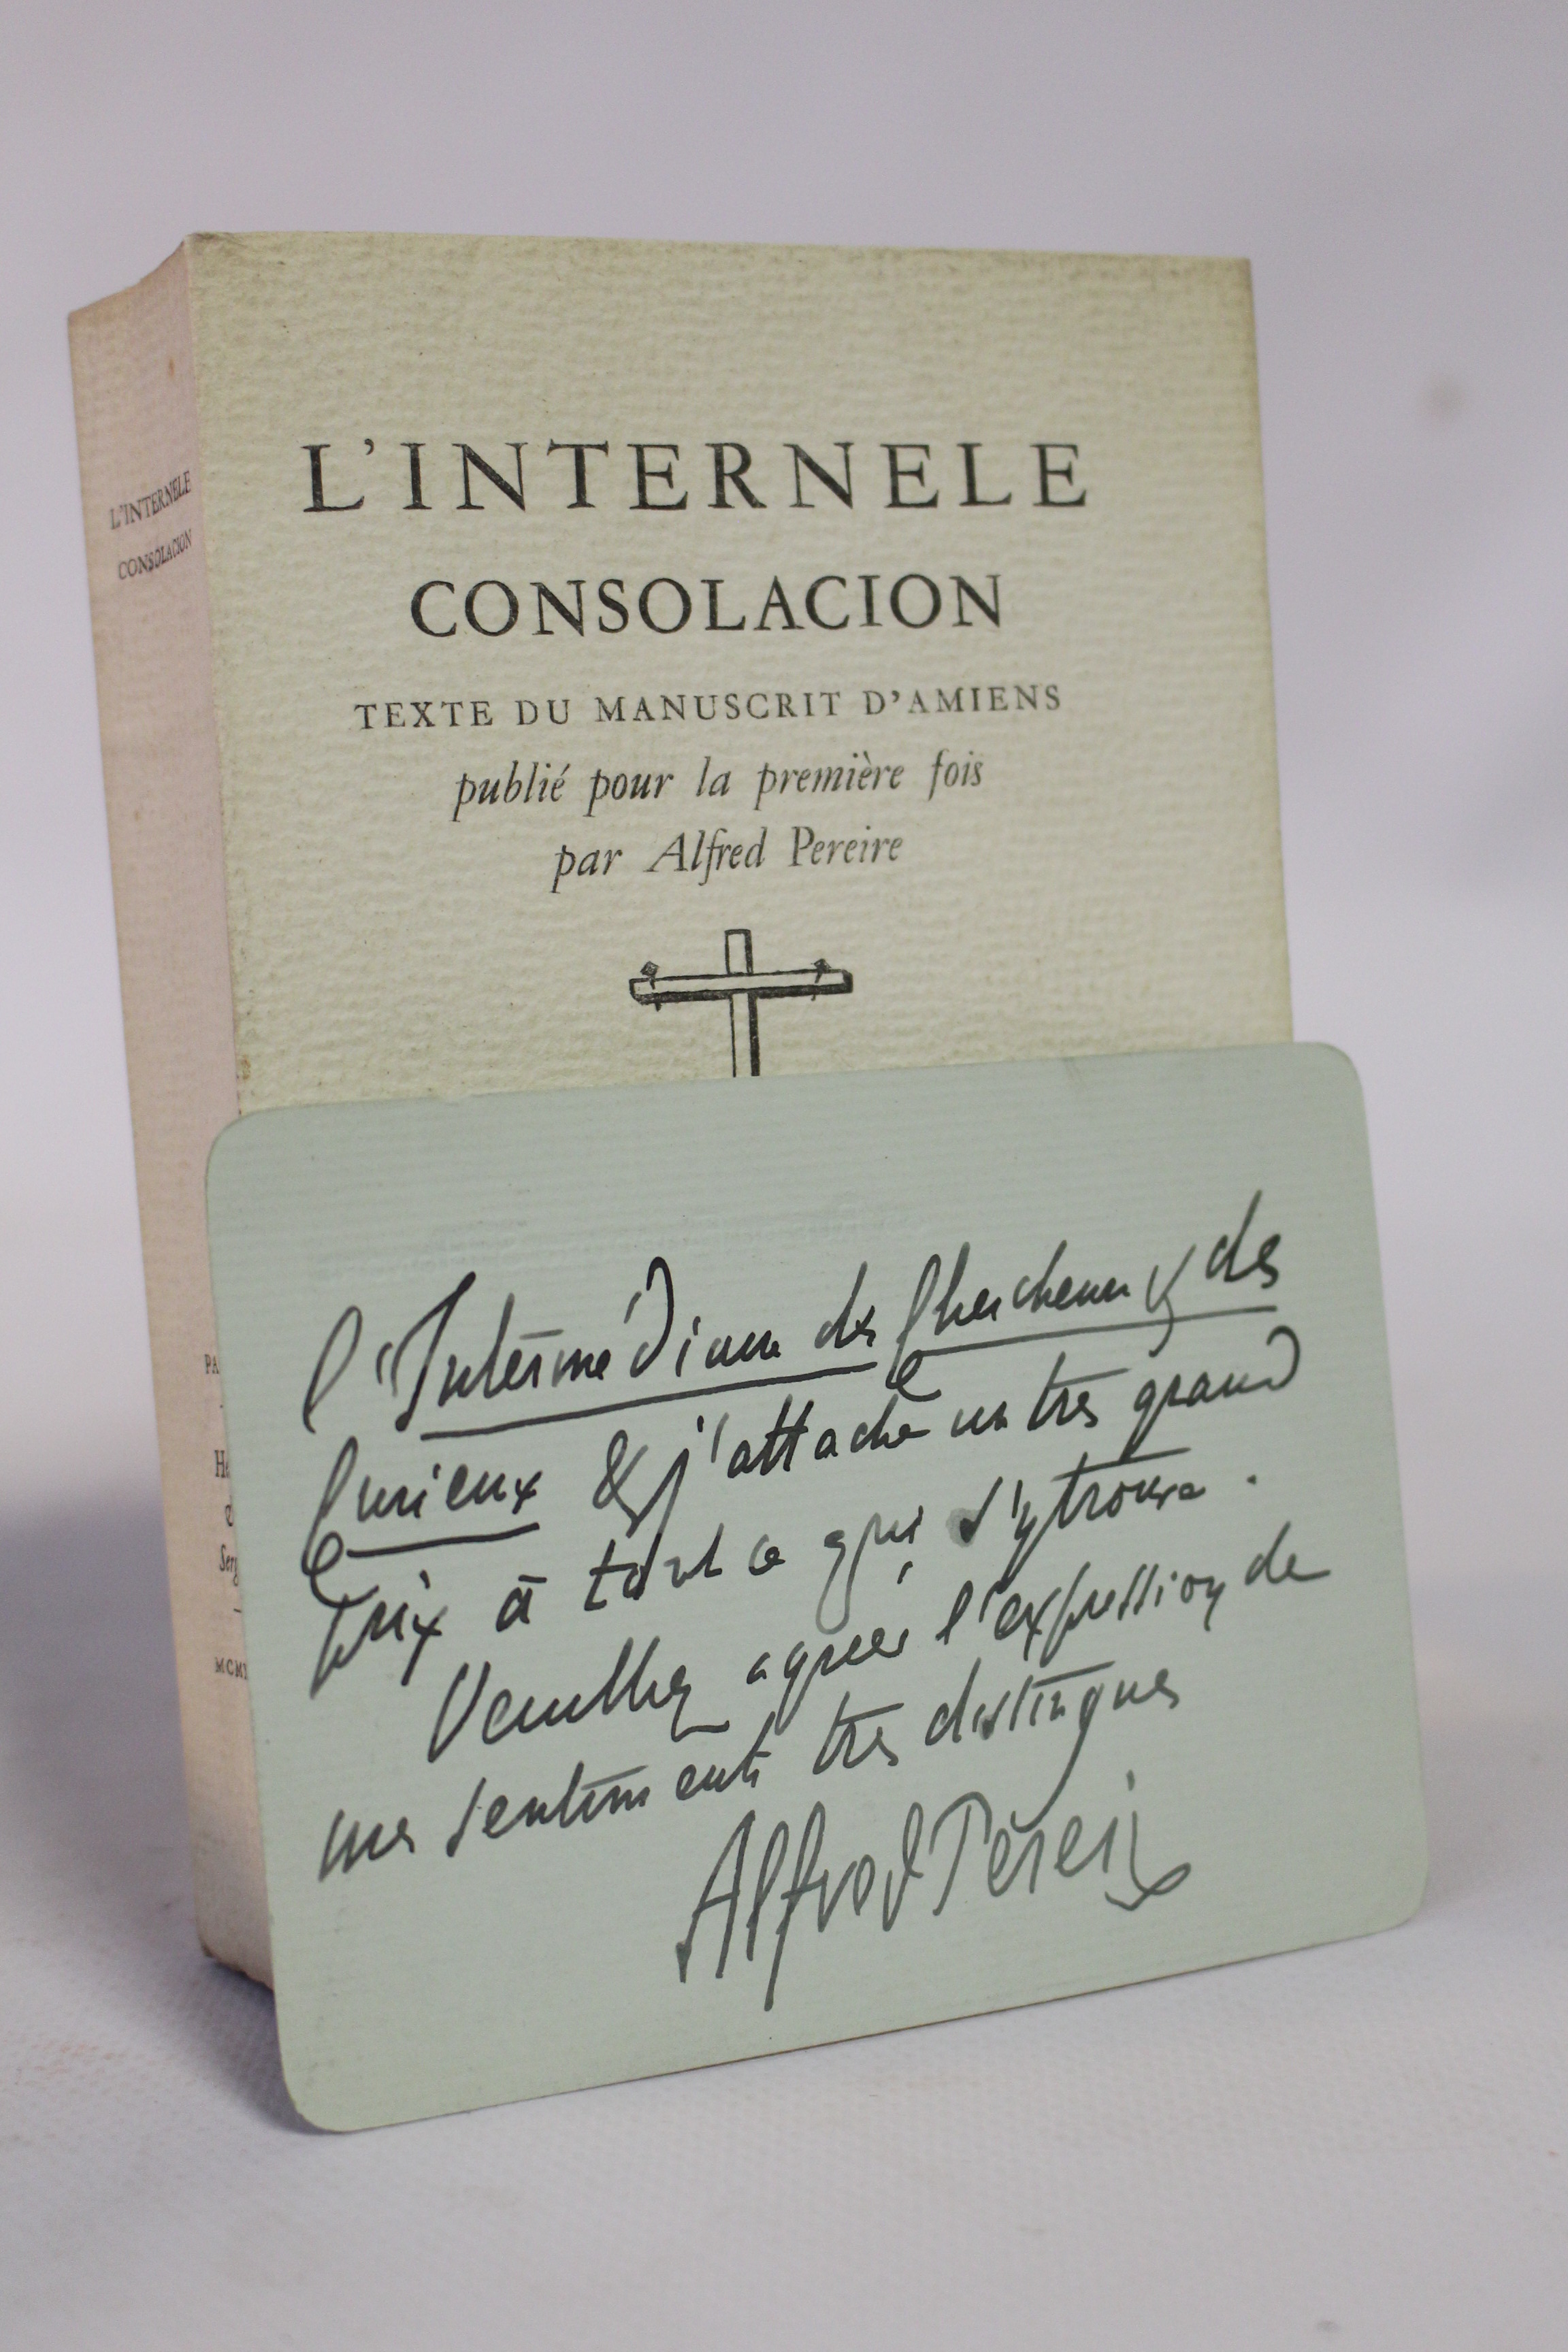 L'INTERNELE
CONSOLACION
TEXTE DU MANUSCRIT D'AMIENS
publié pour la première fois
par Alfred Pereire
L'INTERNELE
CONSOLACION
PA
Serg
MCM
l'Intermédiaire des Chercheurs & des
Curieux & j'attache un très grand
prix à tout ce qui s'y trouve.
Veuillez agréer l'expression de
mes sentiments très distingués
Alfred Pereire